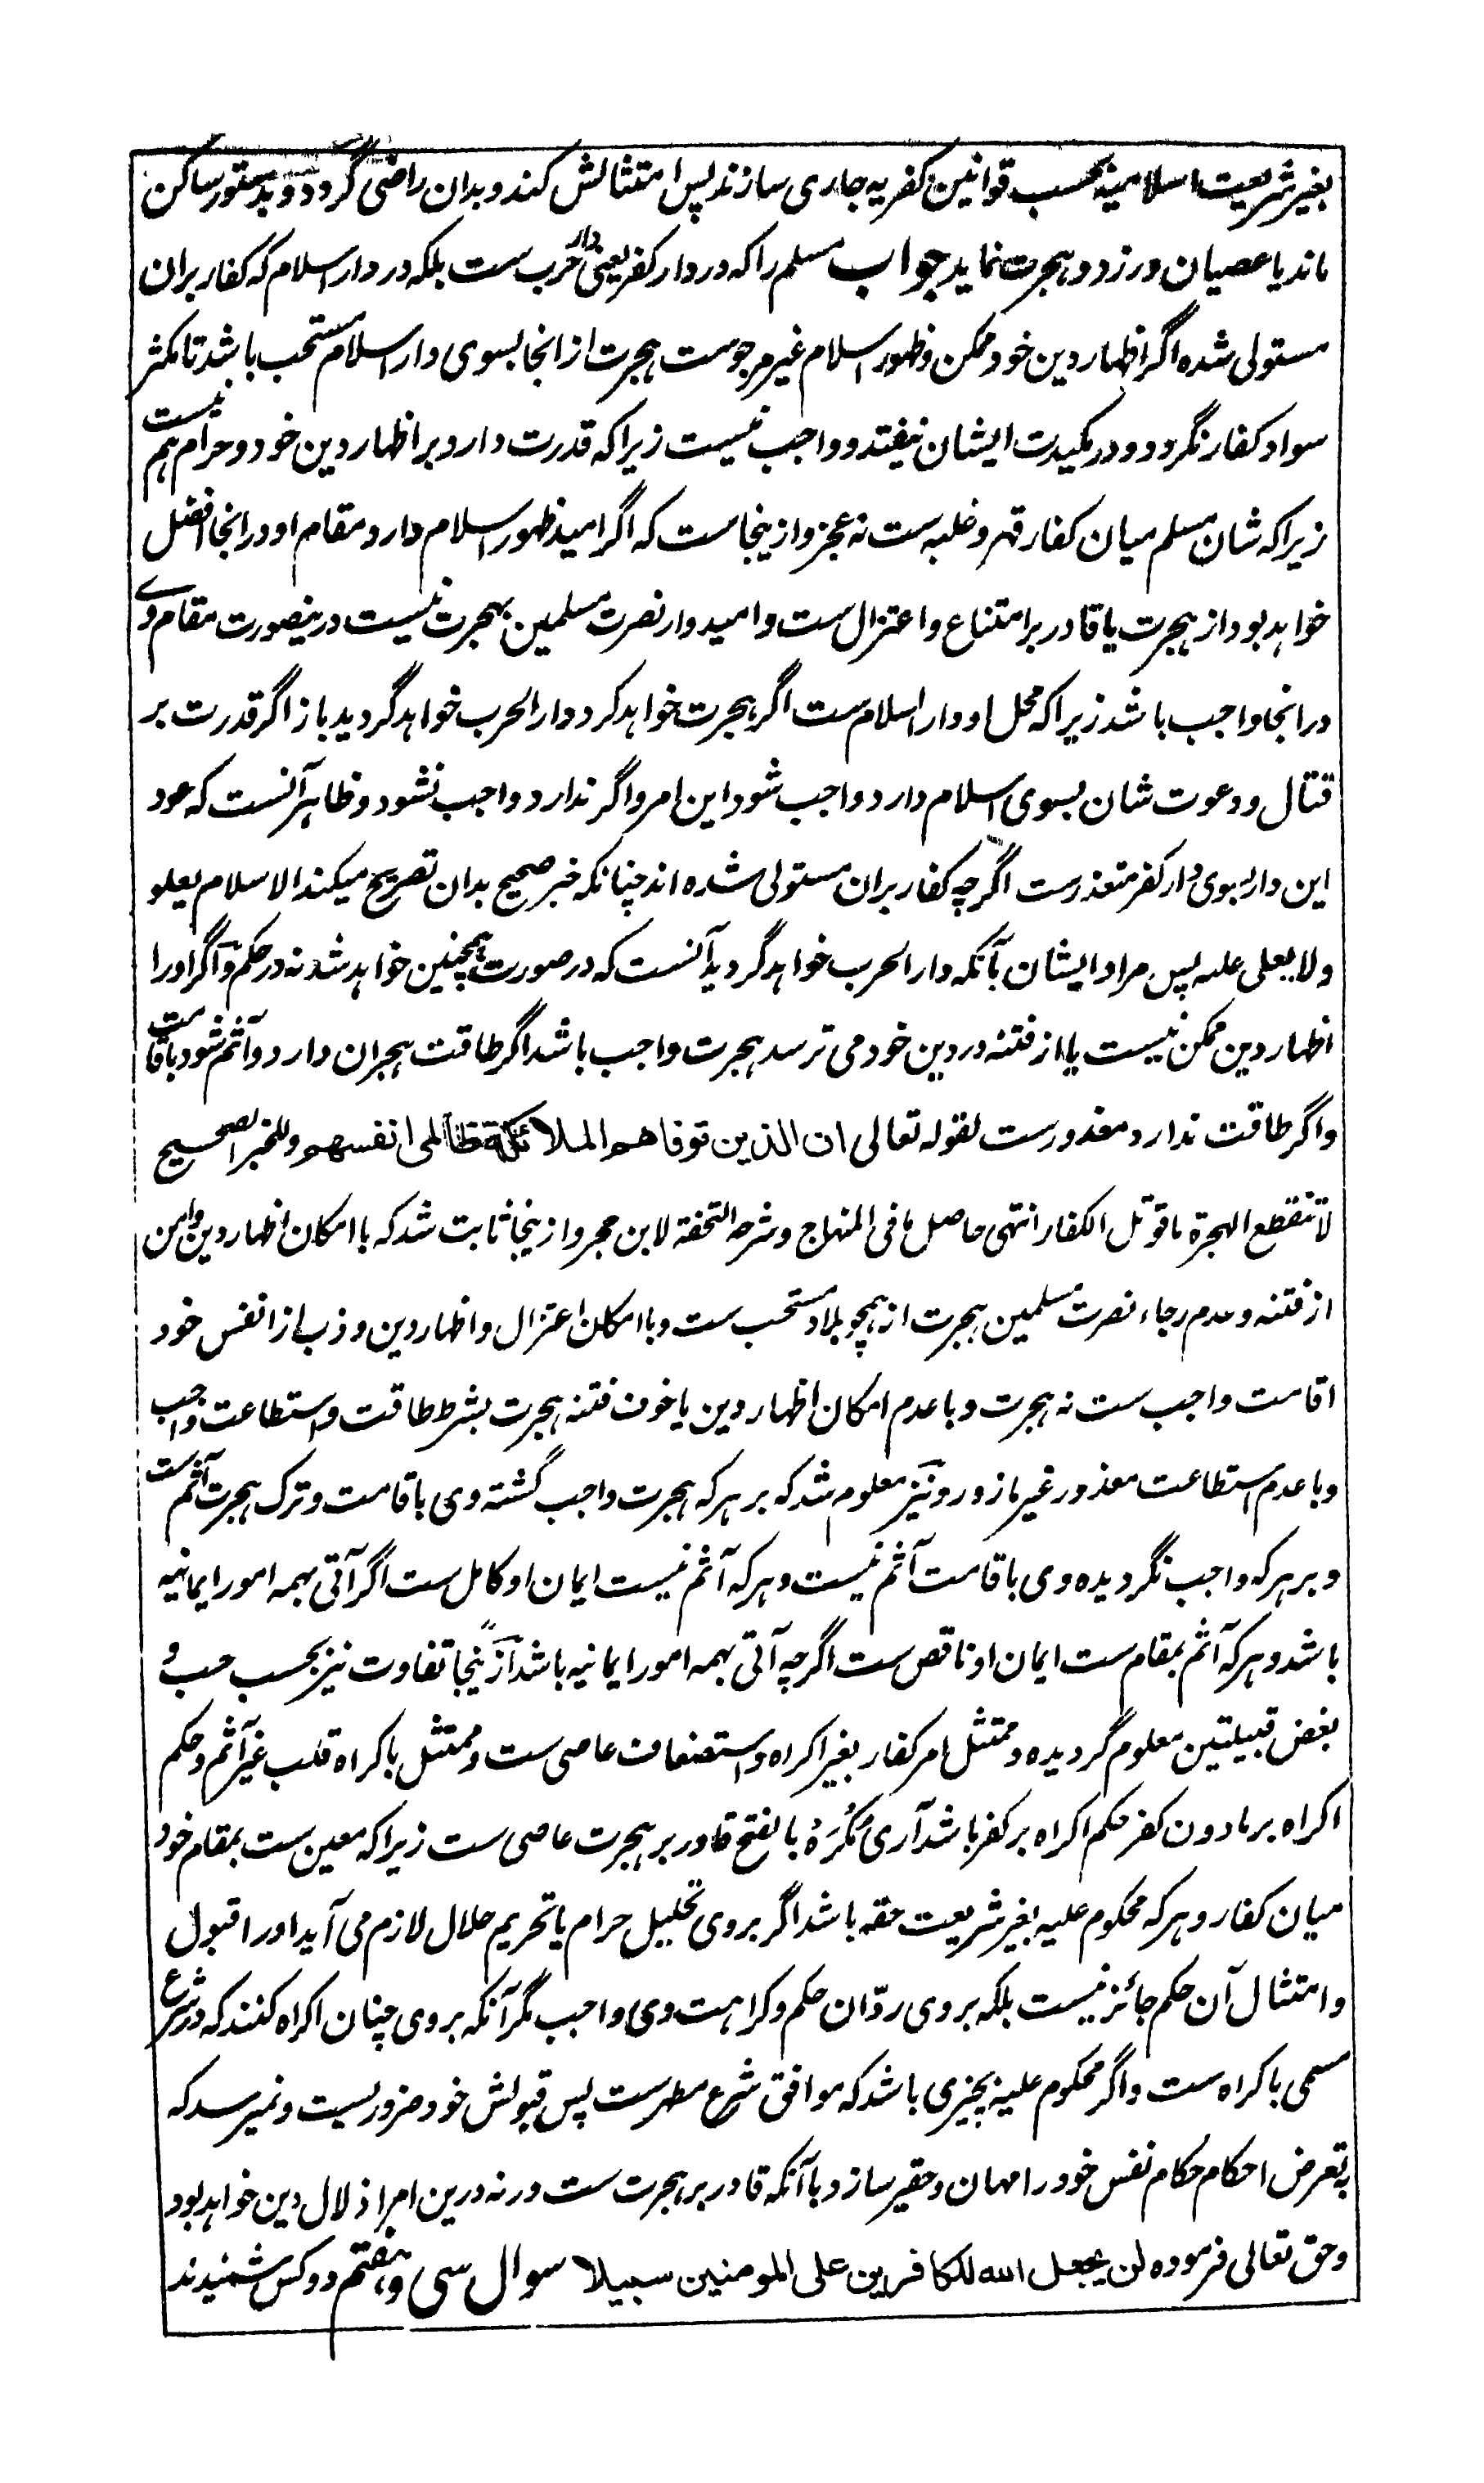 بغیر شریعت اسلامیه بحسب قوانین کفریه جاری سازند پس امتثالش کند و بدان راضی گردد و بدستور ساکن
ماند یا عصیان ورزد و هجرت نماید جواب مسلم را که در دار کفر یعنی دار حرب ست بلکه در دار اسلام که کفار بران
مستولی شده اگر اظهار دین خود ممکن و ظهور اسلام غیر مرجوست هجرت از انجا بسوی دار اسلام مستحب باشد تا مکثر
سواد کفار نگردد و در مکیدت ایشان نیفتد و واجب نیست زیرا که قدرت دارد بر اظهار دین خود و حرام هم نیست
زیرا که شان مسلم میان کفار قهر و غلبه ست نه عجز و ازینجاست که اگر امید ظهور اسلام دارد مقام او در انجا افضل
خواهد بود از هجرت یا قادر بر امتناع و اعتزال ست و امیدوار نصرت مسلمین بهجرت نیست درینصورت مقام وے
در انجا واجب باشد زیرا که محل او دار اسلام ست اگر هجرت خواهد کرد دار الحرب خواهد گردید باز اگر قدرت بر
قتال و دعوت شان بسوی اسلام دارد واجب شود این امر و اگر ندارد واجب نشود و ظاهر آنست که عود
این دار بسوی دار کفر متعذرست اگرچه کفار بران مستولی شده اند چنانکه خبر صحیح بدان تصریح میکند الاسلام یعلو
ولا یعلی علیه پس مراد ایشان بآنکه دار الحرب خواهد گردید آنست که در صورت همچنین خواهد شد نه در حکم و اگر او را
اظهار دین ممکن نیست یا از فتنه در دین خود می ترسد هجرت واجب باشد اگر طاقت هجران دارد و آثم شود باقامت
و اگر طاقت ندارد معذورست لقوله تعالی ان الذین توفاهم الملائکة ظالمی انفسهم وللخبر الصحیح
لا تنقطع الهجرة ما قوتل الکفار انتهی حاصل ما فی المنهاج و شرحه التحفة لابن حجر و ازینجا ثابت شد که با امکان اظهار دین و امن
از فتنه و عدم رجاء نصرت مسلمین هجرت از همچو بلاد مستحب ست و با امکان اعتزال و اظهار دین و ذب از انفس خود
اقامت واجب ست نه هجرت و با عدم امکان اظهار دین یا خوف فتنه هجرت بشرط طاقت و استطاعت واجب
و با عدم استطاعت معذور غیر مازور و نیز معلوم شد که بر هر که هجرت واجب گشته وی باقامت و ترک هجرت آثم ست
و بر هر که واجب نگردیده وی باقامت آثم نیست و هر که آثم نیست ایمان او کامل ست اگر آتی بهمه امور ایمانیه
باشد و هر که آثم بمقام ست ایمان او ناقص ست اگرچه آتی بهمه امور ایمانیه باشد ازینجا تفاوت نیز بحسب حب و
بغض قبیلتین معلوم گردیده و ممتثل امر کفار بغیر اکراه و استضعاف عاصی ست و ممتثل باکراه قلب غیر آثم و حکم
اکراه بر ما دون کفر حکم اکراه بر کفر باشد آری مُکرَه بالفتح قادر بر هجرت عاصی ست زیرا که معین ست بمقام خود
میان کفار و هر که محکوم علیه بغیر شریعت حقه باشد اگر بروی تحلیل حرام یا تحریم حلال لازم می آید او را قبول
و امتثال آن حکم جائز نیست بلکه بروی ردّ ان حکم و کراهت وی واجب مگر آنکه بروی چنان اکراه کنند که در شرع
مسمی باکراه ست و اگر محکوم علیه بچیزی باشد که موافق شرع مطهرست پس قبولش خود ضروریست و نمیرسد که
به تعرض احکام حکام نفس خود را مهان و حقیر سازد با آنکه قادر بر هجرت ست ورنه درین امر اذلال دین خواهد بود
و حق تعالی فرموده لن یجعل الله للکافرین علی المومنین سبیلا سوال سی و هفتم دو کس شنیدند